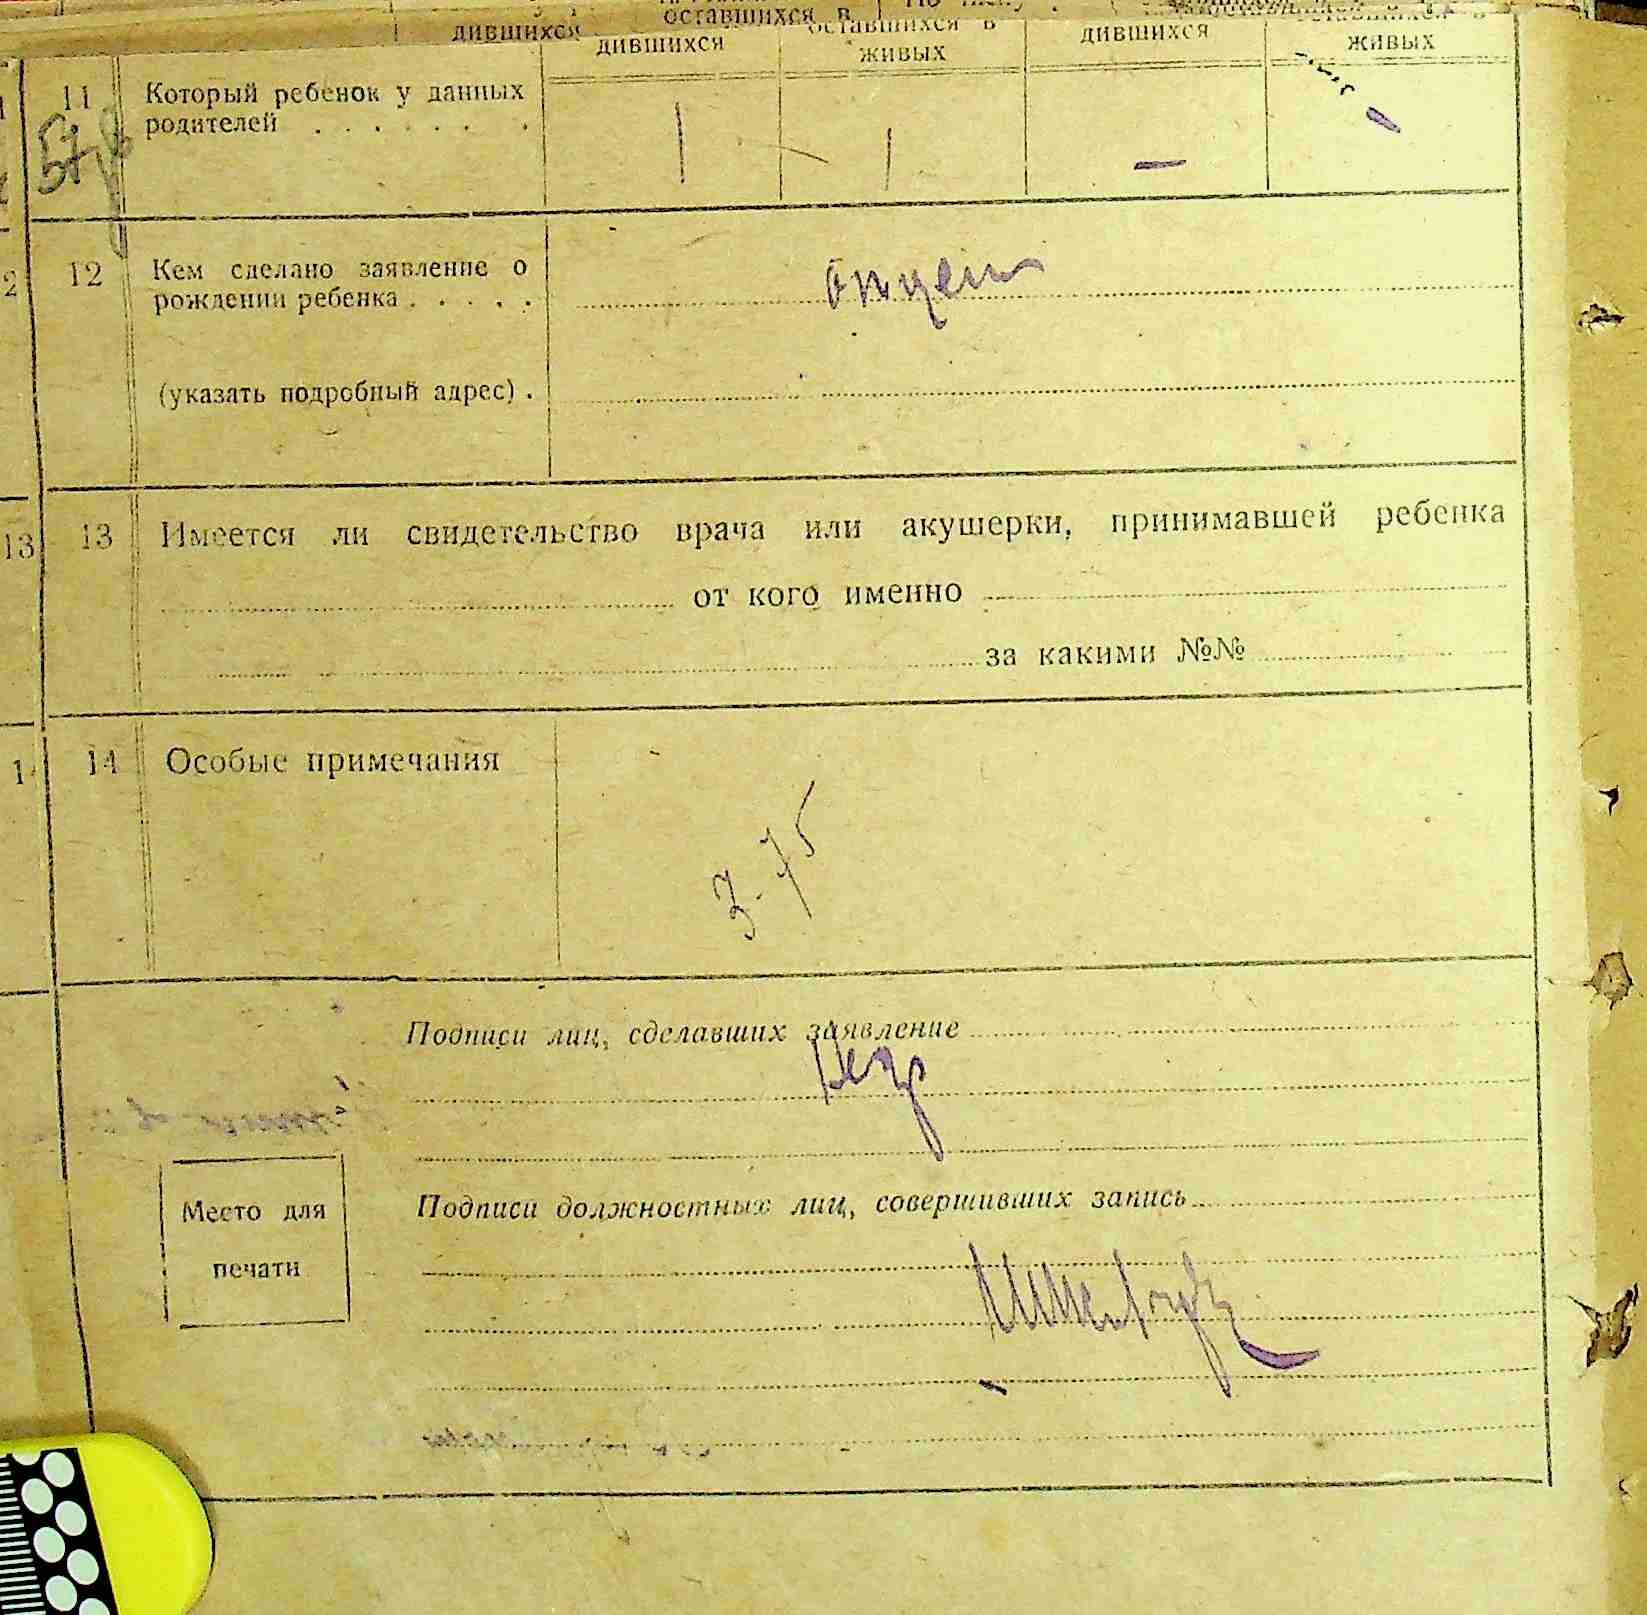 оставшихся в
дившихся дившихся оставшихся в живых дившихся живых
11 Который ребенок у данных
родителей . . . . . .
1 1 — —
12 Кем сделано заявление о
рождении ребенка . . . . .
отцем
(указать подробный адрес) .
13 13 Имеется ли свидетельство врача или акушерки, принимавшей ребенка
от кого именно
за какими №№
14 Особые примечания
3-75
Подписи лиц, сделавших заявление
Подписи должностных лиц, совершивших запись
Место для
печати